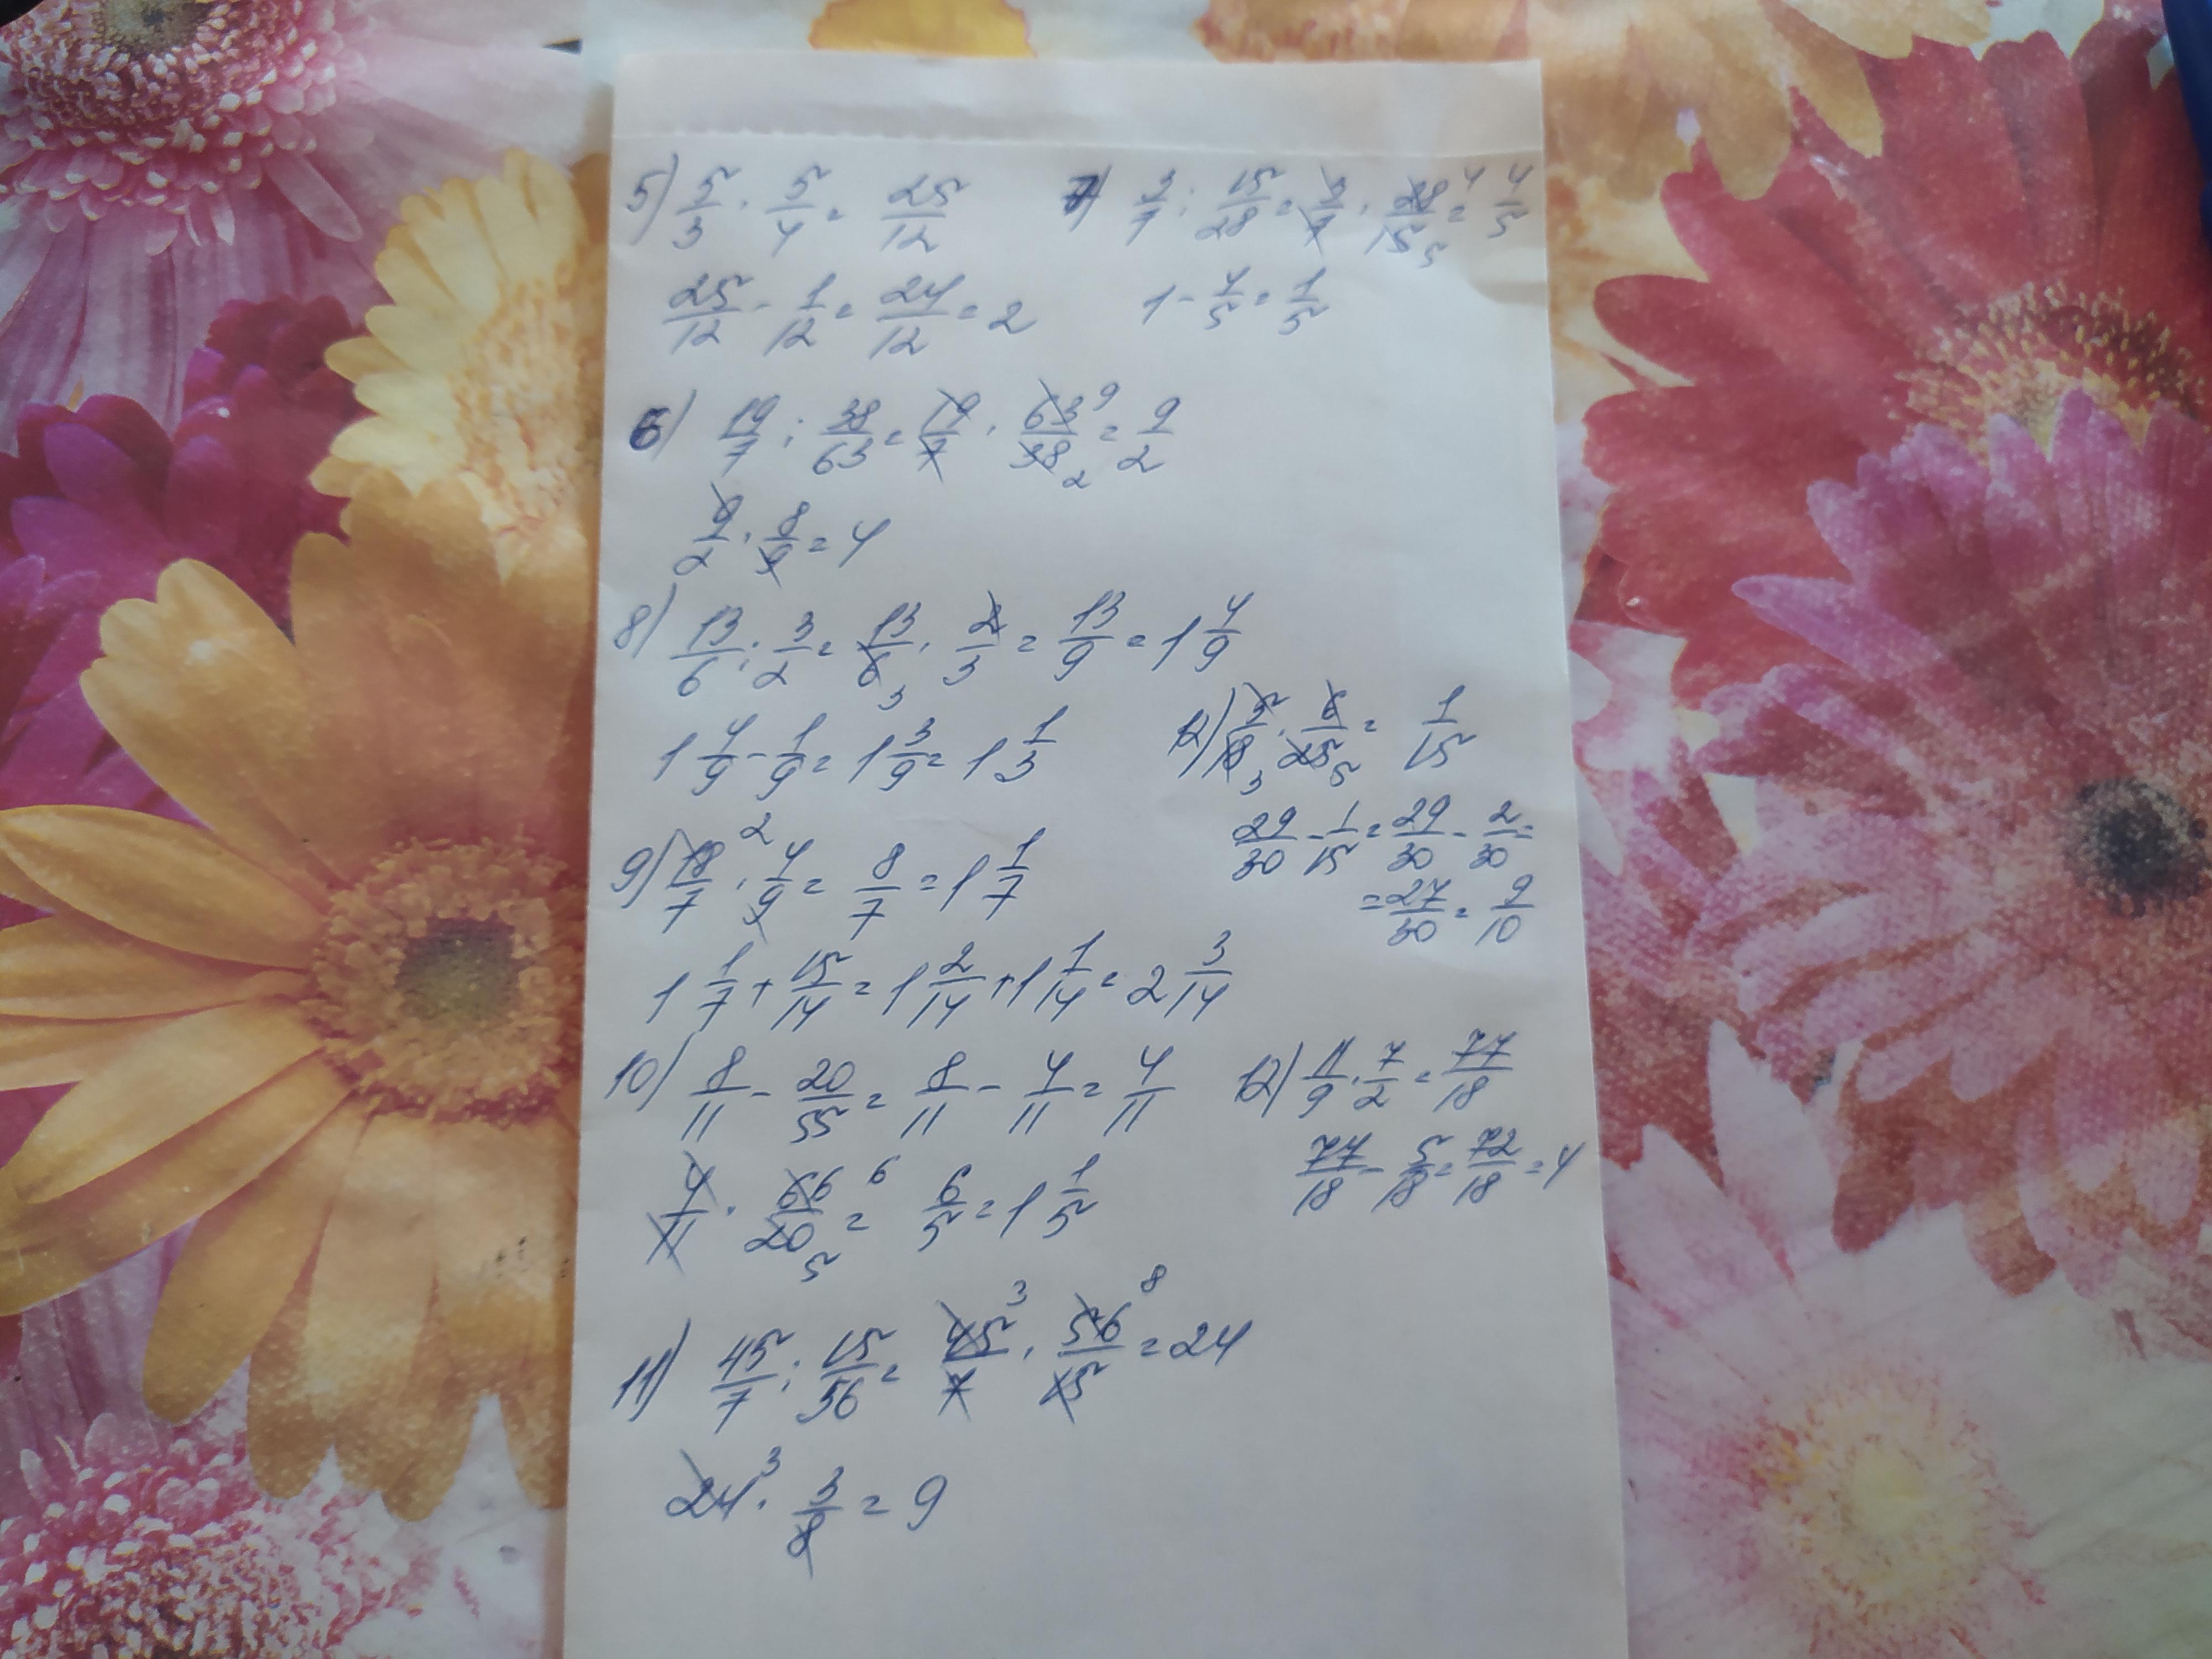 5) 5/3 · 5/4 = 25/12
25/12 - 1/12 = 24/12 = 2
7) 3/7 : 15/28 = 3/7 · 28/15 = 4/5
1 - 4/5 = 1/5
6) 19/7 : 38/63 = 19/7 · 63/38 = 9/2
9/2 · 8/9 = 4
8) 13/6 : 3/2 = 13/6 · 2/3 = 13/9 = 1 4/9
1 4/9 - 1/9 = 1 3/9 = 1 1/3
12) 5/18 · 6/25 = 1/15
29/30 - 1/15 = 29/30 - 2/30 =
= 27/30 = 9/10
9) 18/7 · 4/9 = 8/7 = 1 1/7
1 1/7 + 15/14 = 1 2/14 + 1 1/14 = 2 3/14
10) 8/11 - 20/55 = 8/11 - 4/11 = 4/11
4/11 · 66/20 = 6/5 = 1 1/5
12) 11/9 · 7/2 = 77/18
77/18 - 5/18 = 72/18 = 4
11) 45/7 : 15/56 = 45/7 · 56/15 = 24
24 · 3/8 = 9